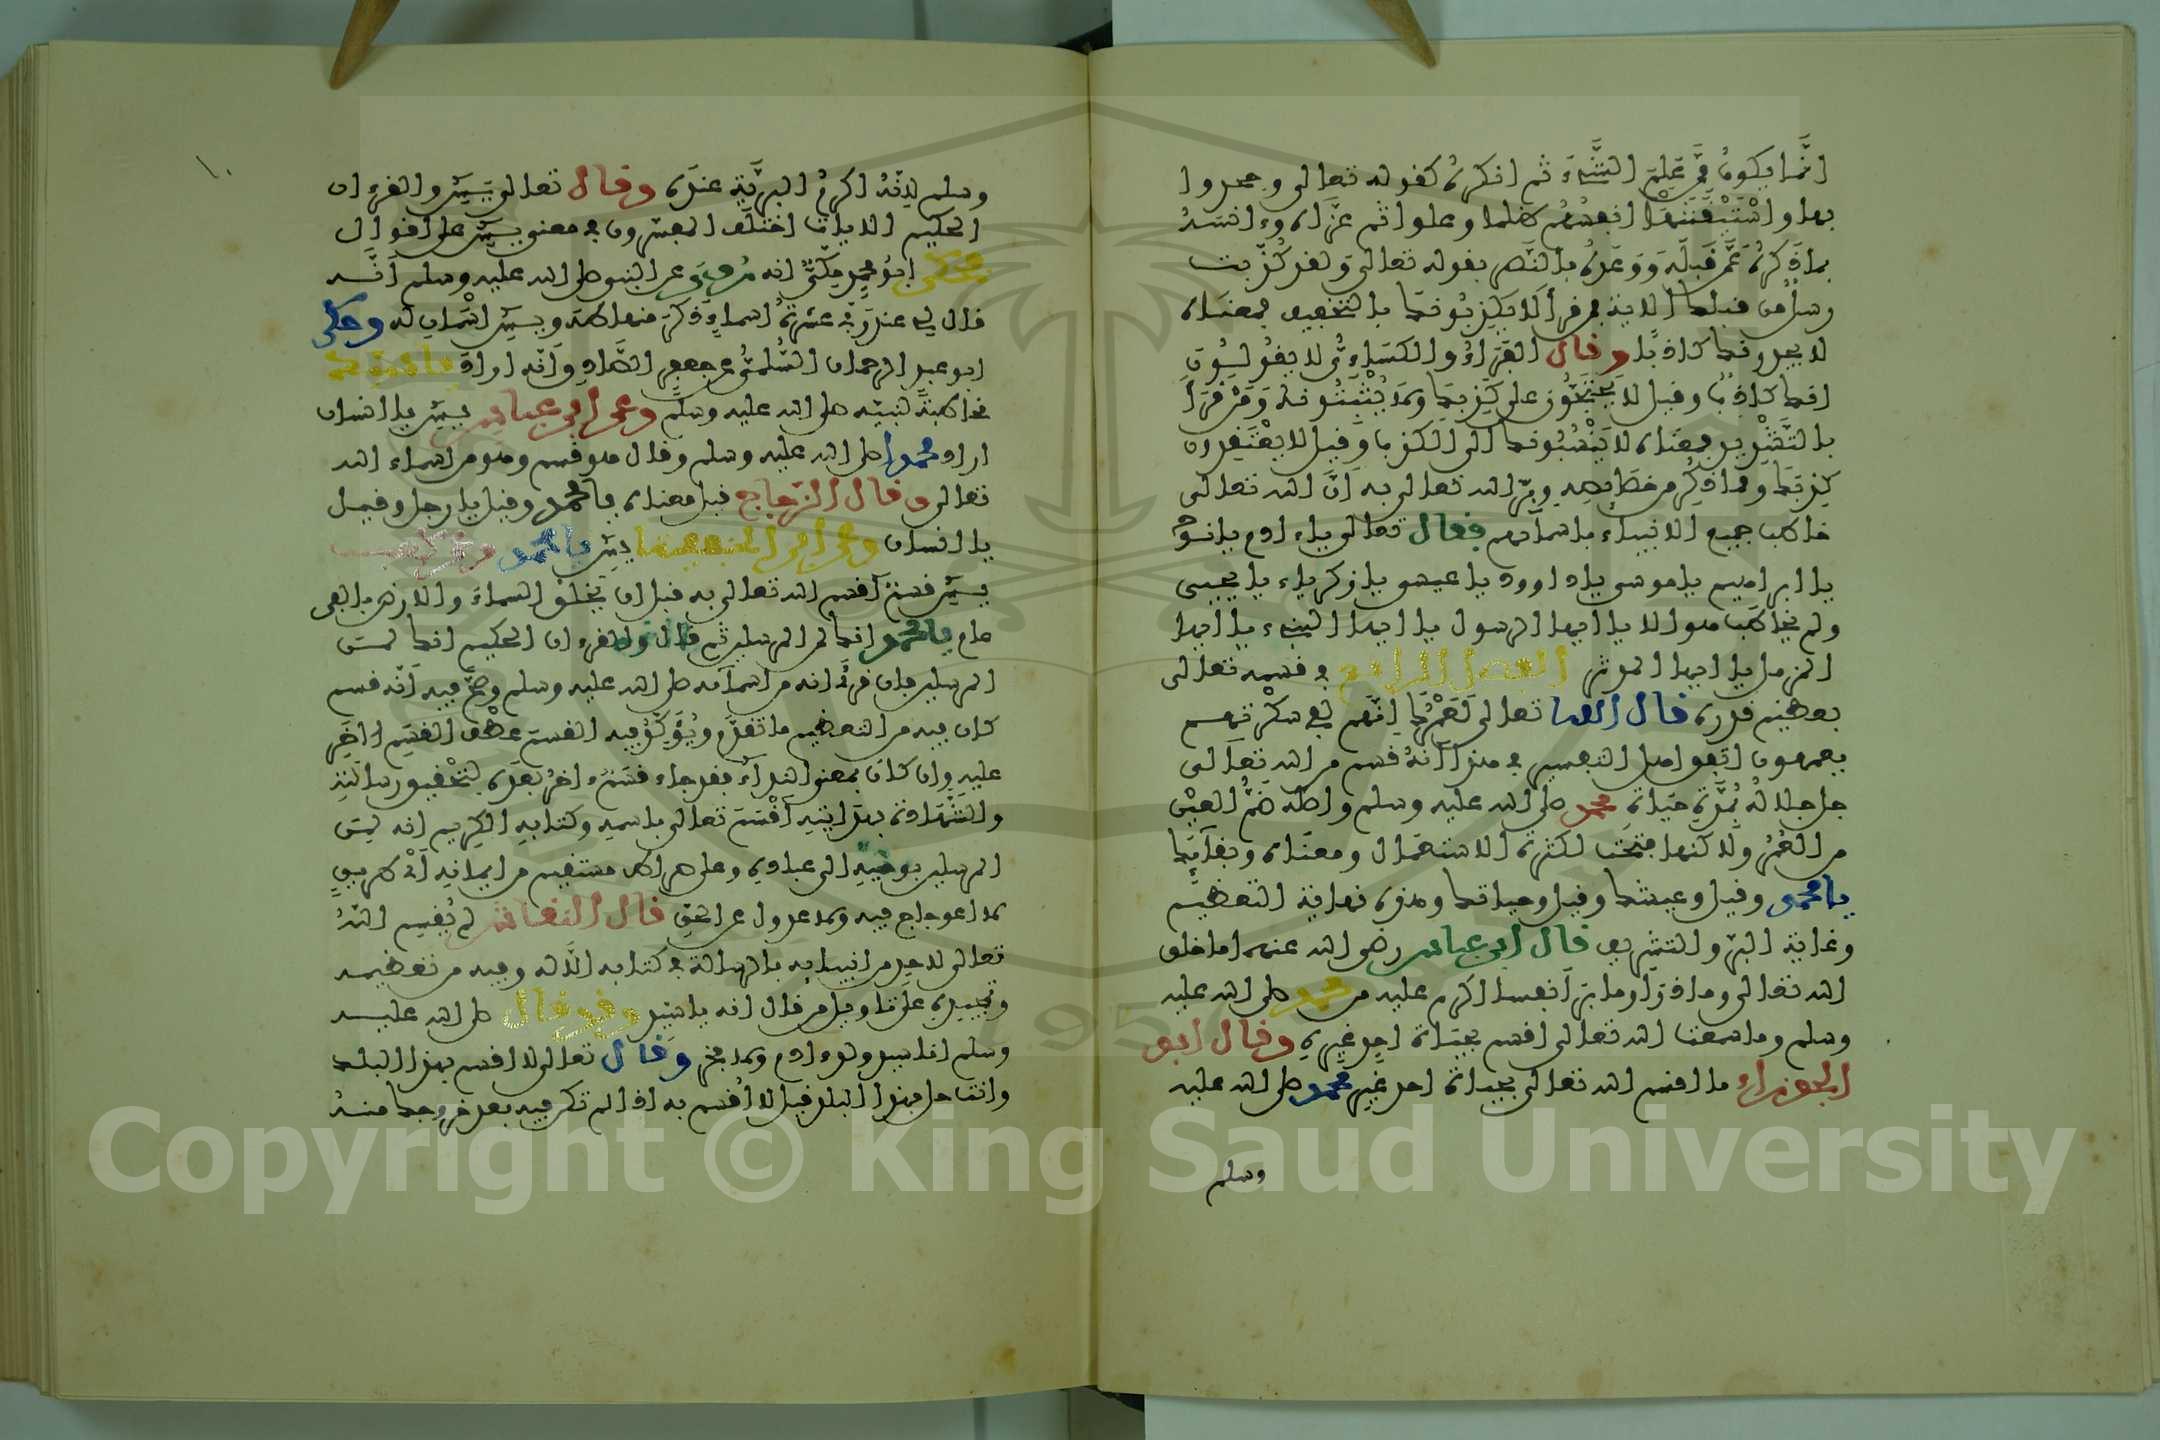 انما يكون ممن علم الشيء ثم انكره كقوله تعالى وجحدوا
بها واستيقنتها انفسهم ظلما وعلوا ثم عزاه وءانسه
بما ذكره عمن قبله ووعده بالنصر بقوله تعالى ولقد كذبت
رسل من قبلك الاية فمن قرأ لا يكذبونك بالتخفيف فمعناه
لا يجدونك كاذبا وقال الفراء والكسائي لا يقولون
انك كاذب وقيل لا يحتجون على كذبك ولا يثبتونه ومن قرأ
بالتشديد فمعناه لا ينسبونك الى الكذب وقيل لا يعتقدون
كذبك ومما ذكر من خصائصه وبر الله تعالى به ان الله تعالى
خاطب جميع الانبياء باسمآئهم فقال تعالى ياءادم يانوح
يا ابراهيم ياموسى ياداوود ياعيسى يازكرياء يايحيى
ولم يخاطب هو الا يا ايها الرسول يا ايها النبيء يا ايها
المزمل يا ايها المدثر الفصل الرابع في قسمه تعالى
بعظيم قدره قال الله تعالى لعمرك انهم لفي سكرتهم
يعمهون اتفق اهل التفسير في هذا انه قسم من الله تعالى
جل جلاله بمدة حياة محمد صلى الله عليه وسلم واصله ضم العين
من العمر ولاكنها فتحت لكثرة الاستعمال ومعناه وبقآئك
يا محمد وقيل وعيشك وقيل وحياتك وهذه نهاية التعظيم
وغاية البر والتشريف قال ابن عباس رضي الله عنهما ما خلق
الله تعالى وما ذرأ وما برأ نفسا اكرم عليه من محمد صلى الله عليه
وسلم وما سمعت الله تعالى اقسم بحياة احد غيره وقال ابو
الجوزاء ما اقسم الله تعالى بحياة احد غير محمد صلى الله عليه
وسلم
١٠
وسلم لانه اكرم البرية عنده وقال تعالى يس والقرءان
الحكيم الايات اختلف المفسرون في معنى يس على اقوال
فحكى ابو محمد مكي انه روي عن النبي صلى الله عليه وسلم انه
قال لي عند ربي عشرة اسماء ذكر منها طه ويس اسمان له وحكى
ابو عبد الرحمان السلمي عن جعفر الصادق انه اراد يا سيد
مخاطبة لنبيه صلى الله عليه وسلم وعن ابن عباس يس يا انسان
اراد محمدا صلى الله عليه وسلم وقال هو قسم وهو من اسماء الله
تعالى وقال الزجاج قيل معناه يا محمد وقيل يا رجل وقيل
يا انسان وعن ابن الحنفية يس يا محمد وعن كعب
يس قسم اقسم الله تعالى به قبل ان يخلق السماء والارض بالفي
عام يا محمد انك لمن المرسلين ثم قال والقرءان الحكيم انك لمن
المرسلين فان قدر انه من اسمآئه صلى الله عليه وسلم وصح فيه انه قسم
كان فيه من التعظيم ما تقدم ويؤكد فيه القسم عطف القسم الاخر
عليه وان كان بمعنى النداء فقد جاء قسم ءاخر بعده لتحقيق رسالته
والشهادة بهدايته اقسم تعالى باسمه وكتابه الكريم انه لمن
المرسلين بوحيه الى عباده وعلى صراط مستقيم من ايمانه اي طريق
لا اعوجاج فيه ولا عدول عن الحق قال النقاش لم يقسم الله
تعالى لاحد من انبيائه بالرسالة في كتابه الا له وفيه من تعظيمه
وتمجيده على تاويل من قال انه يا سيد وقد قال صلى الله عليه
وسلم انا سيد ولد ءادم ولا فخر وقال تعالى لا اقسم بهذا البلد
وانت حل بهذا البلد قيل لا اقسم به اذا لم تكن فيه بعد خروجك منه